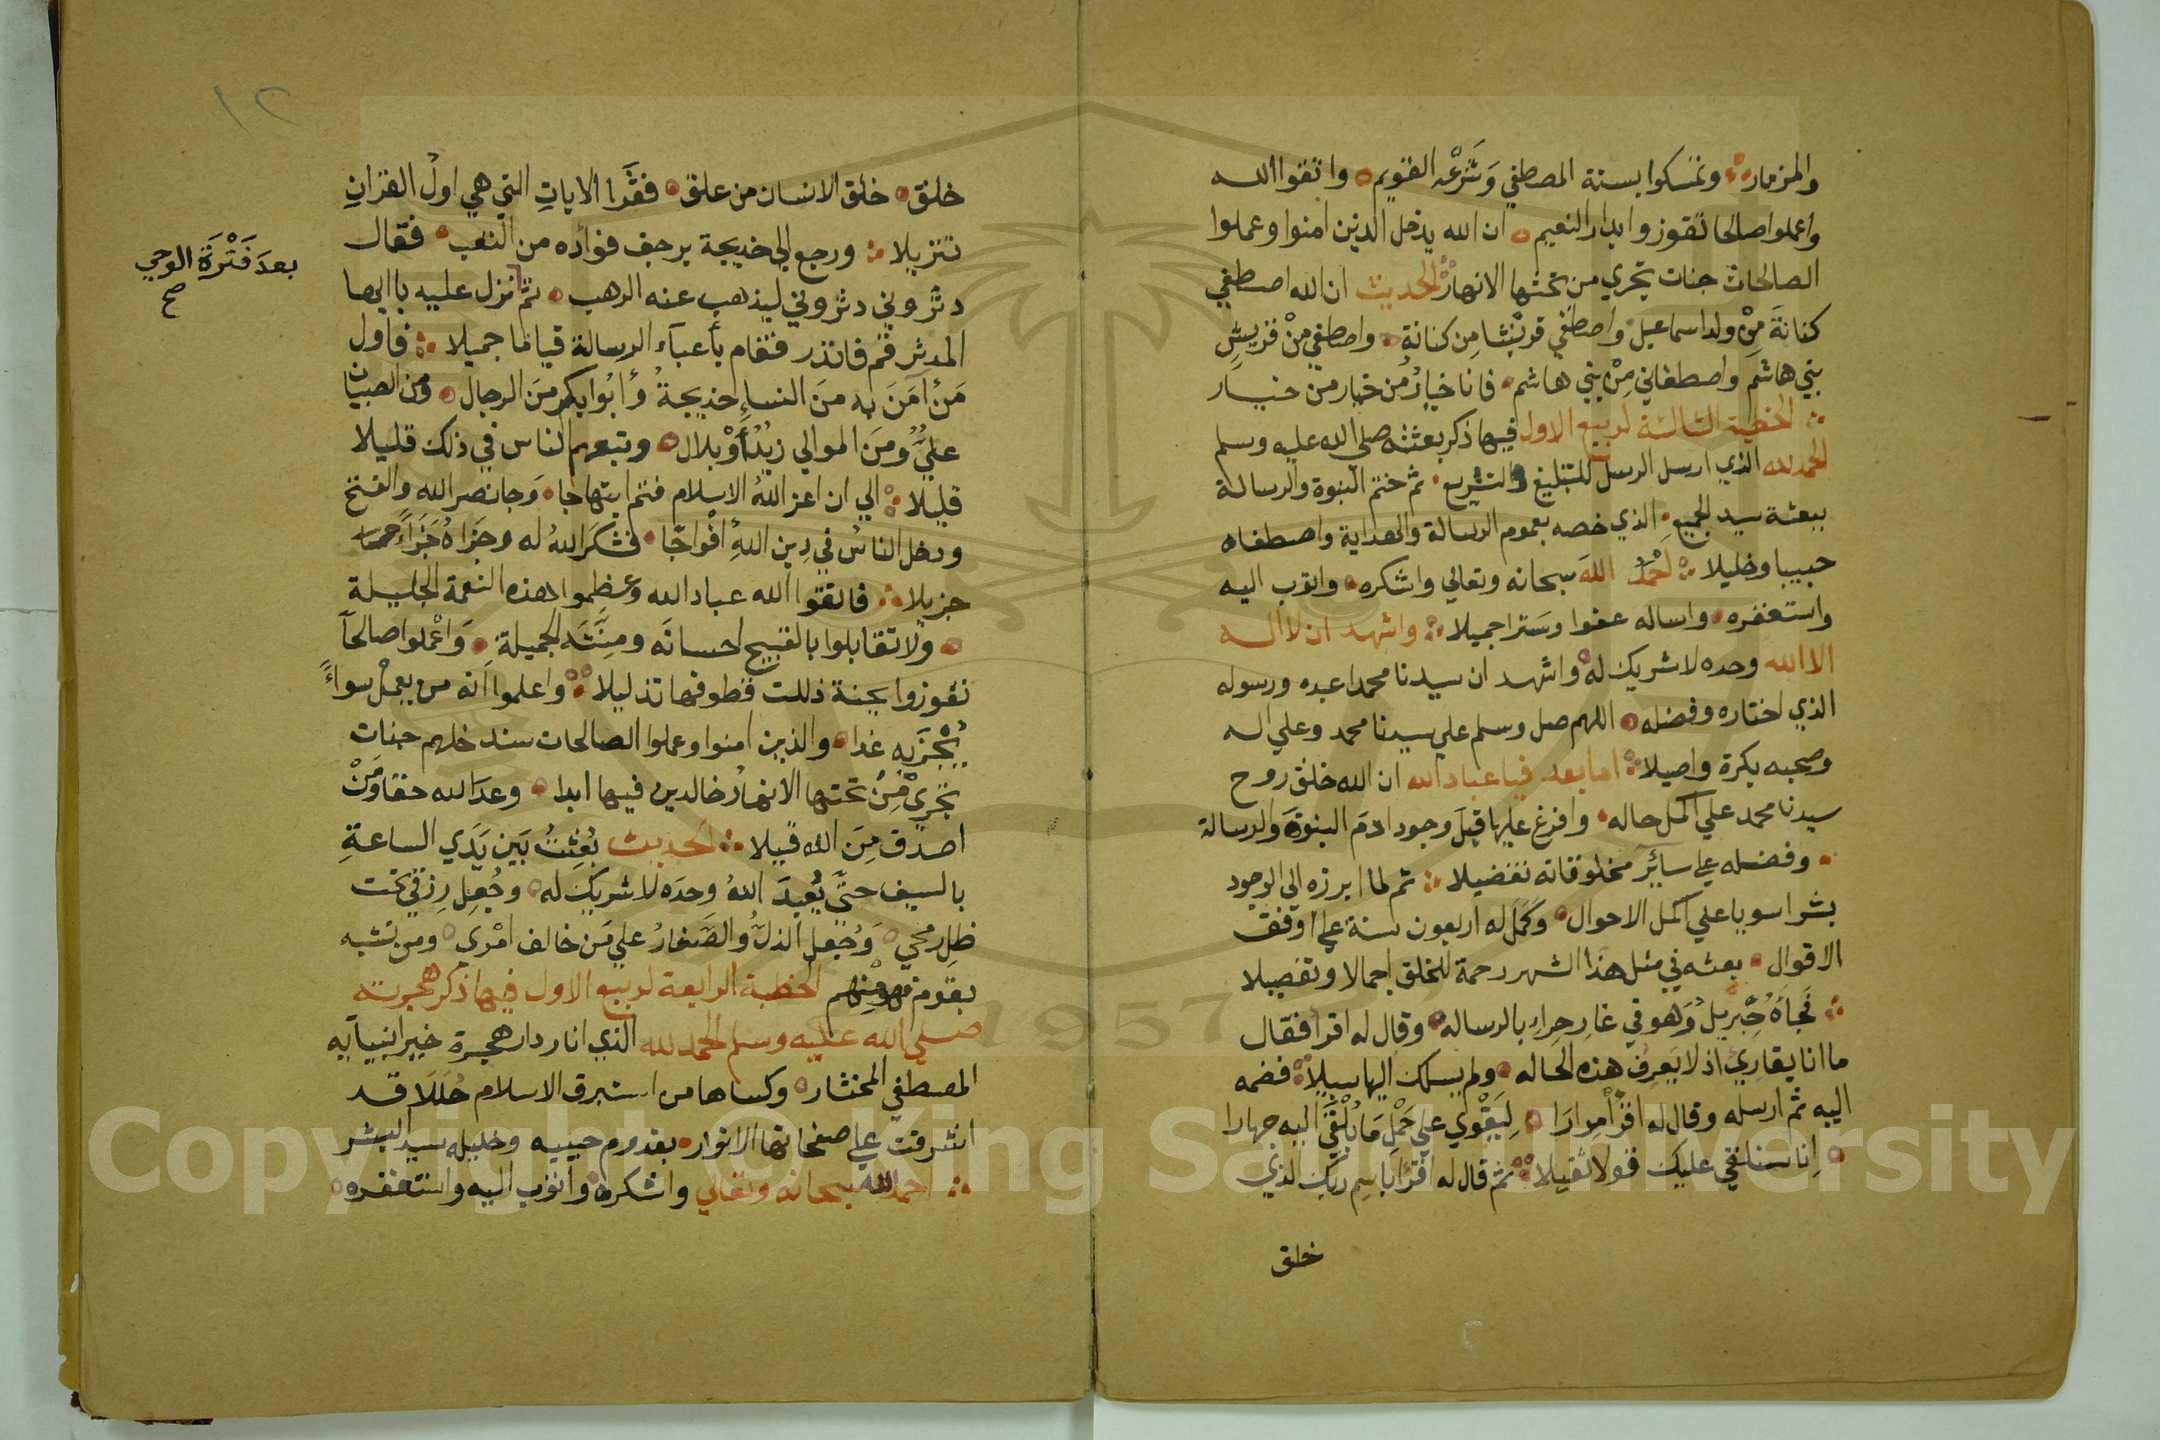 والمزمار وتمسكوا بسنة المصطفي وَشَرْعِه القويم واتقوا الله
واعملوا صالحا تفوزوا بدار النعيم ان الله يدخل الذين امنوا وعملوا
الصالحات جنات تجري من تحتها الانهارُ الحديث ان الله اصطفي
كنانةَ مِنْ ولد اسماعيل واصطفي قريشا مِن كنانةٍ واصطفي مِنْ قريشٍ
بني هاشم واصطفاني مِنْ بني هاشم فانا خيارٌ من خيار من خيار
الخطبة الثالثة لربيع الاول فيها ذكر بعثته صلي الله عليه وسلم
الحمد لله الذي ارسل الرسل للتبليغ والتشريع ثم ختم النبوة والرسالة
ببعثة سيد الجميع الذي خصه بعموم الرسالة والهداية واصطفاه
حبيبا وخليلا احمْدُ اللهَ سبحانه وتعالي واشكره واتوب اليه
واستغفره واساله عفوا وسَترا جميلا واشهد ان لا اله
الا الله وحده لا شريك له واشهد ان سيدنا محمدا عبده ورسوله
الذي اختاره وفضله اللهم صل وسلم علي سيدنا محمد وعلي اله
وصحبه بكرة واصيلا اما بعد فيا عباد الله ان الله خلق روح
سيدنا محمد علي اكمل حاله وافرغ عليها قبلَ وجود ادمَ النبوةَ والرسالة
وفضله علي سائِر مخلوقاته تفضيلا ثم لما ابرزه الي الوجود
بشرا سويا علي اكمل الاحوال وكَمَل له اربعون سنة علي اوفق
الاقوال بعثه في مثل هذا الشهر رحمة للخلق اجمالا وتفصيلا
فَجاءَهُ جِبْرِيلُ وَهو في غارِ حِراءِ بالرساله وقال له اقرأ فقال
ما انا بقارِئٍ اذ لا يَعرِفُ هذه الحاله ولم يسلك اليها سبيلاً فضمه
اليه ثم ارسله وقال له اقْرَأْ مِرارَا لِيَقْوي علي حَمْلِ مَا يُلْقَيَ اليه جهارا
اِنا سنلقي عليك قولا ثقيلا ثم قال له اقرأ باسم ربك الذي
خلق
١٢
خلق خلق الانسان من علق فقَرا الاياتِ التي هي اولُ القرانِ
تنزيلا ورجع الي خديجة يرجف فؤاده من التعب فقال
دثروني دثروني ليذهب عنه الرهب ثم انزل عليه يا ايها
بعدَ فَتْرَةِ الوحي
صح
المدثر قم فانذر فقام بأعباء الرسالة قياما جميلا فاول
مَن آمَنَ به منَ النساءِ خديجةُ وأبُوا بكر منَ الرجال ومن الصبيان
عليٌّ ومنَ الموالي زيْدُ أوْ بلال وتبعهم الناس في ذلك قليلا
قليلا الي ان اعز اللهُ الاسلام فتم ابتهاجا وَجا نصر الله والفتح
ودخل الناسُ في دِين اللهِ افْواجًا فشكَرَ اللهُ له وجزاهُ جَزاءً
جزيلا فاتقوا الله عباد الله وعظموا هذه النعمة الجليلة
ولا تقابلوا بالقبيح احسانَه ومِنَّتَه الجميلة وَاعْملوا صالحآ
تفوزوا بجنة ذللت قطوفها تذليلا واعلموا انه من يعملْ سواءً
يُجْزَ به غدا والذين امنوا وعملوا الصالحات سندخلهم جنات
تجري مِن تحتها الانهارُ خالدين فيها ابدا وعدَ الله حقا ومَنْ
اصدق مِنَ الله قيلا الحديث بُعِثتُ بَين يَدَي الساعةِ
بالسيف حتَّي يُعبدَ اللهُ وحدَه لا شريك له وجُعِل رِزقي تحت
ظلِ رمحي وَجُعِلَ الذلُّ والصَغارُ علي مَن خالف امْري ومن تشبه
بقوم فهو منهم الخطبة الرابعة لربيع الاول فيها ذكر هجرته
صلي الله عليه وسلم الحمد لله الذي انار دار هجرة خير انبيآيه
المصطفي المختار وكساها من استبرق الاسلام حُلَلَا قد
اشرقت علي صفحاتها الانوار بقدوم حبيبه وخليله سيد البشر
احمد الله سبحانه وتعالي واشكره واتوب اليه واستغفره
Copyright © King Saud University
1957